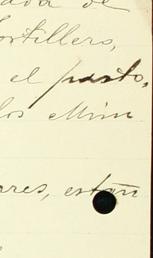 ada de
ortillero,
el pasto,
los Mim
ares, están